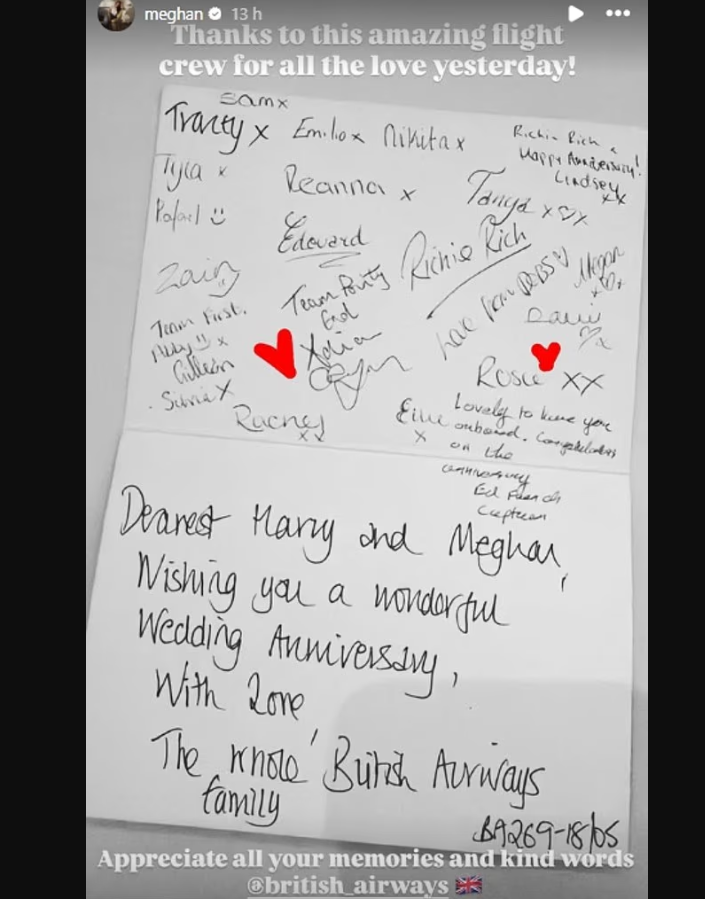 meghan 13 h
Thanks to this amazing flight
crew for all the love yesterday!
Samx
Tracey x Emilio x Nikita x
Richie Rich
Happy Anniversary!
Lindsey
xx
Tyla x
Reanna x
Tanya x♡x
Rafael
Edouard
Richie Rich
Zain
Megan
Team Party
End
love from DEBS
Team First.
Abby x
Gillean
Silvia X
Rosie XX
Rachel
xx
x
Lovely to have you
onboard. Congratulations
on the
anniversary
Ed
Captain
Dearest Harry and Meghan,
Wishing you a wonderful
Wedding Anniversary,
With Love,
The whole British Airways
family
BA269-18/05
Appreciate all your memories and kind words
@british_airways 🇬🇧